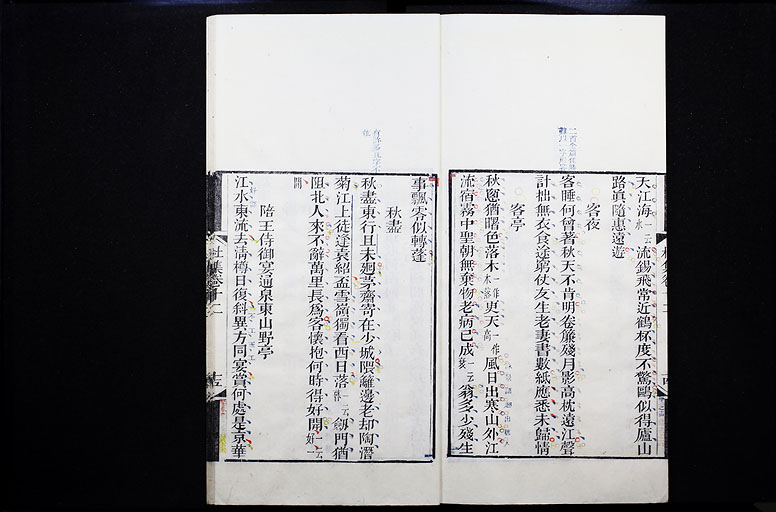 天江海一云水流錫飛常近鶴杯度不驚鷗似得廬山
路眞隨惠遠遊
客夜
客睡何曾著秋天不肯明卷簾殘月影高枕遠江聲
計拙無衣食途窮仗友生老妻書數紙應悉未歸情
客亭
秋窻猶曙色落木一作木落更天一作高風日出寒山外江
流宿霧中聖朝無棄物老病已成一云衰翁多少殘生
事飄零似轉蓬
秋盡
秋盡東行且未廻茅齋寄在少城隈籬邊老却陶潛
菊江上徒逢袁紹盃雪嶺獨看西日落一云劔門猶
阻北人來不辭萬里長爲客懷抱何時得好開一云好
開
陪王侍御宴通泉東山野亭
江水東流去淸樽日復斜異方同宴賞何處是京華
杜集卷十二